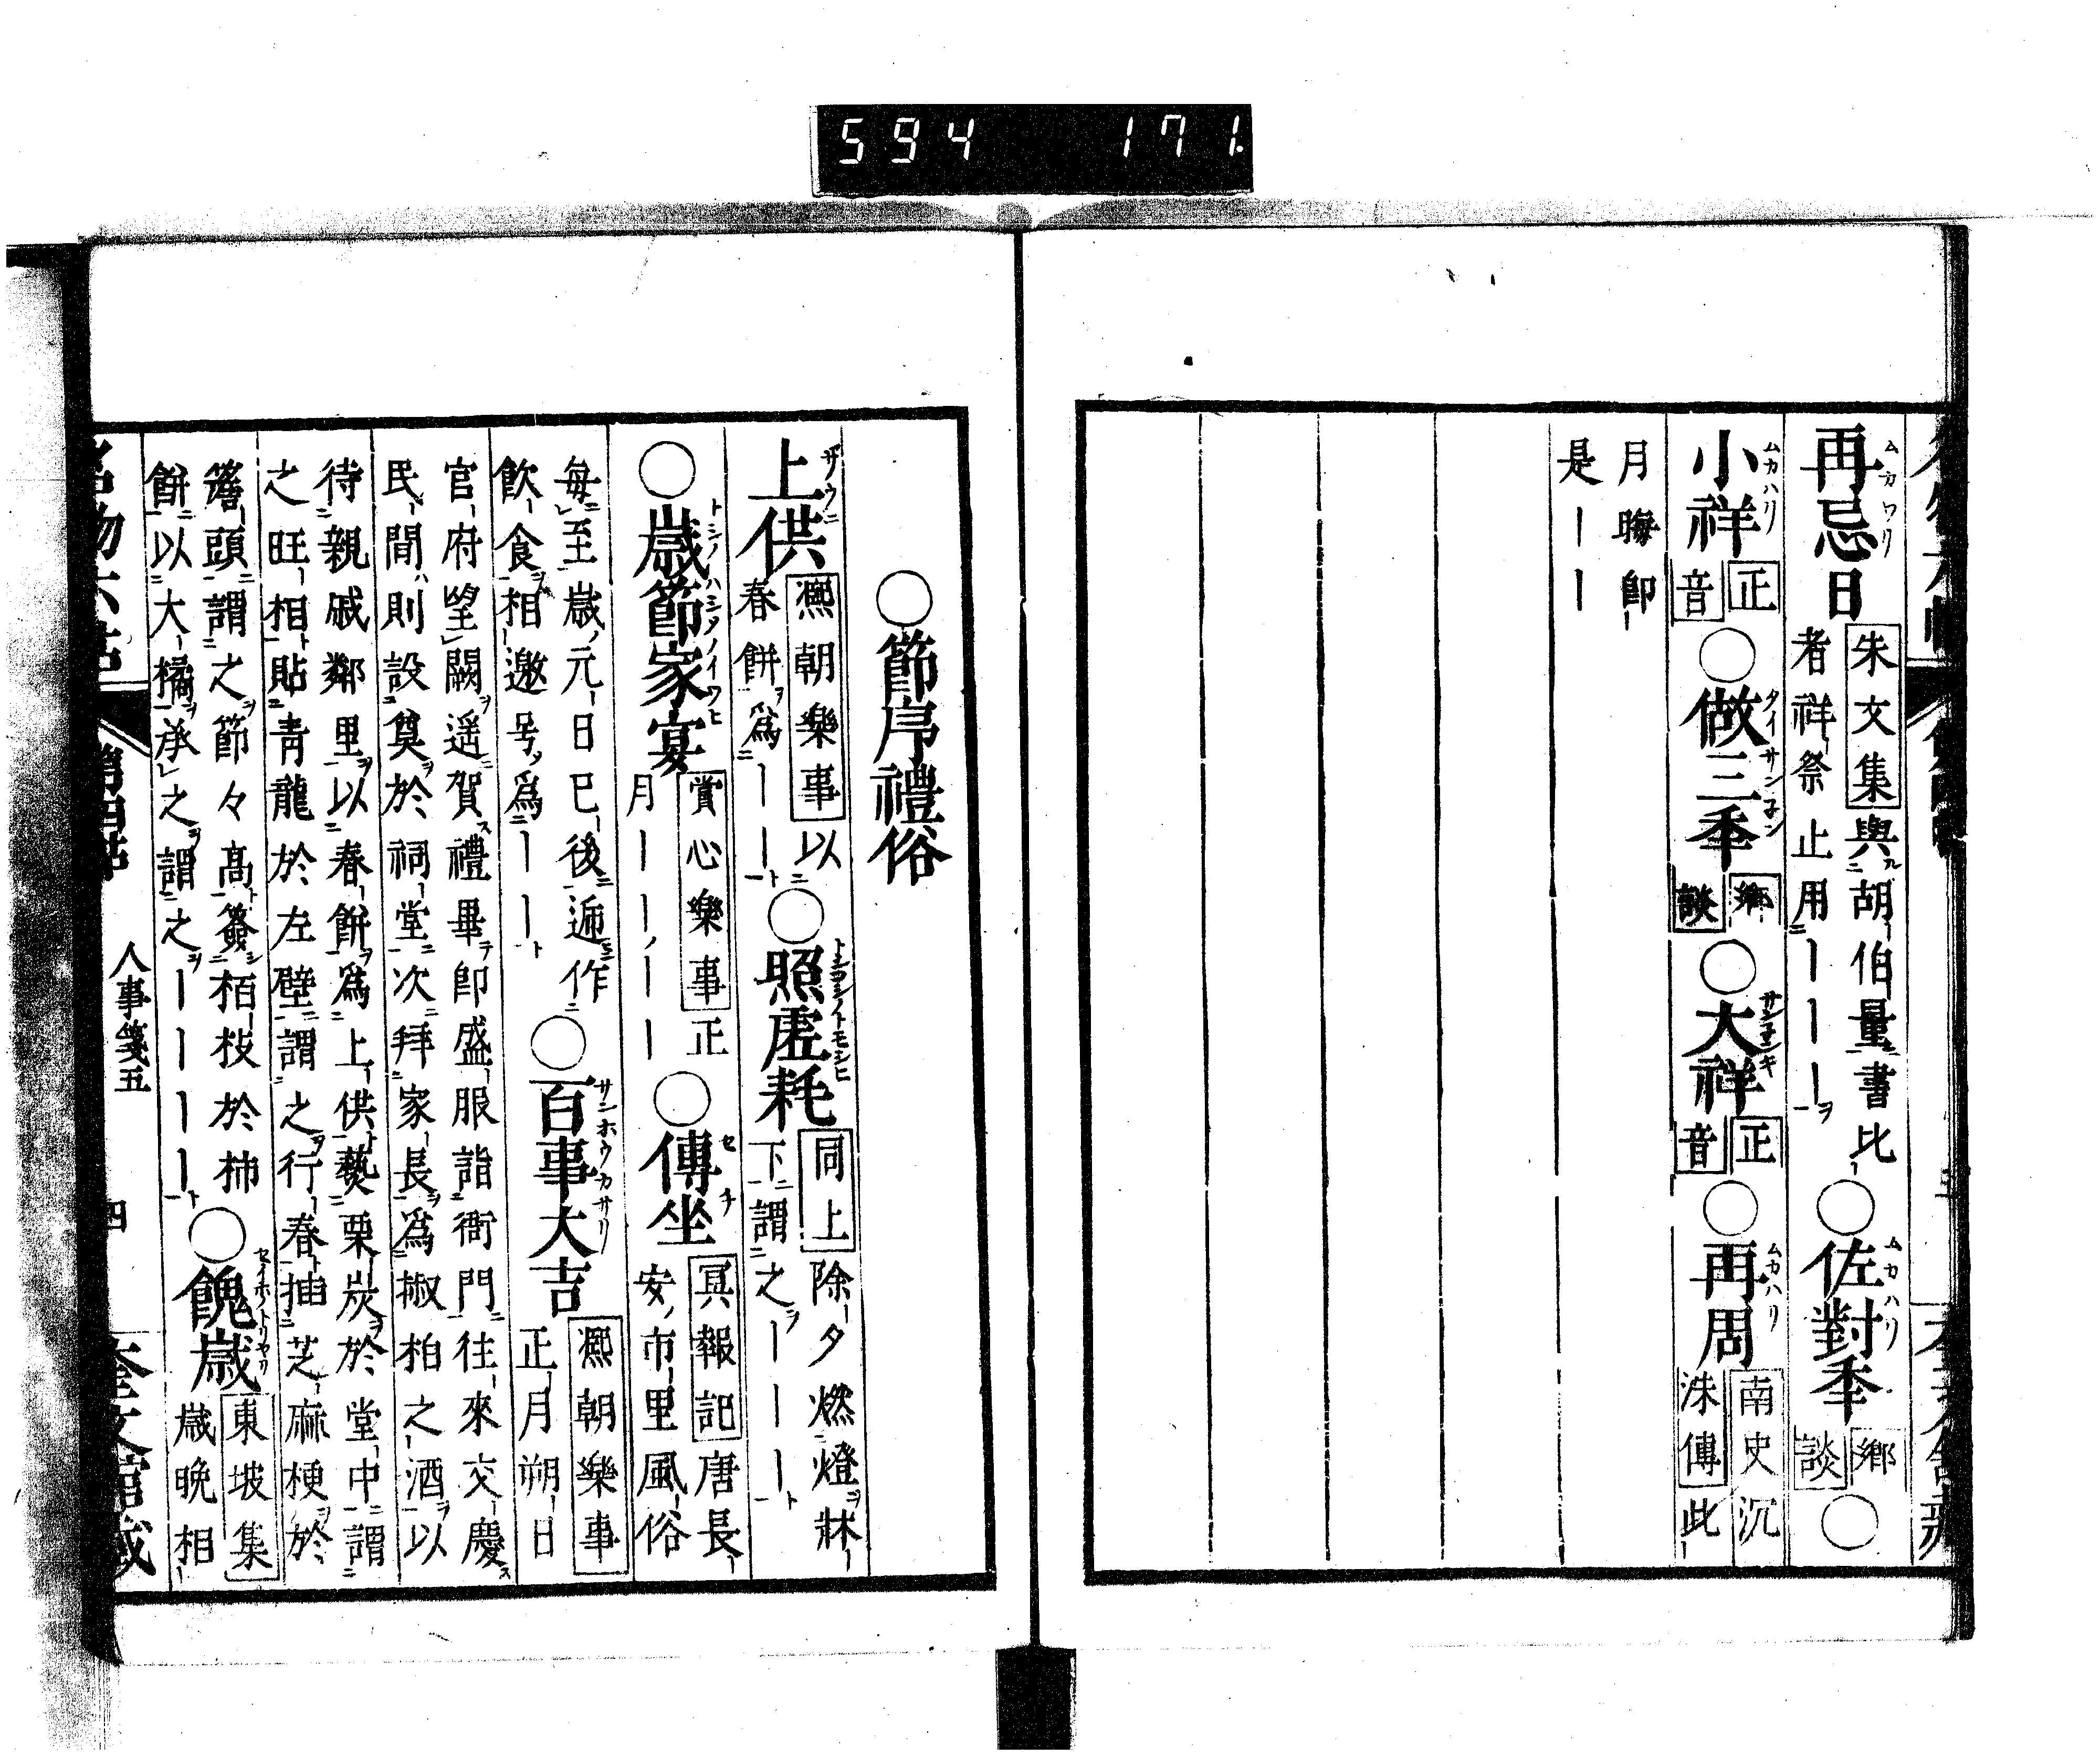 594 171.
再忌日 朱文集 與胡伯量書比
者祥祭止用〡〡〡 ○佐對秊 鄉談 ○
小祥 正音 ○做三秊 鄉談 ○大祥 正音 ○再周 南史沉
洙傳 此
月晦卽
是〡〡
○節序禮俗
上供 熈朝樂事 以
春餅爲〡〡 ○照虛耗 同上 除夕燃燈牀
下謂之〡〡〡
○嵗節家宴 賞心樂事 正
月〡〡〡〡 ○傳坐 冥報記 唐長
安市里風俗
每至嵗元日巳後遞作
飮食相邀号爲〡〡 ○百事大吉 熈朝樂事
正月朔日
官府望闕遥賀禮畢卽盛服詣衙門往來交慶
民間則設奠於祠堂次拜家長爲椒柏之酒以
待親戚鄰里以春餅爲上供爇栗炭於堂中謂
之旺相貼青龍於左壁謂之行春揷芝麻梗於
簷頭謂之節々髙簽栢枝於柿
餅以大橘承之謂之〡〡〡〡 ○餽嵗 東坡集
嵗晚相
名物六帖
第四帖
人事箋五
四
奎文館藏